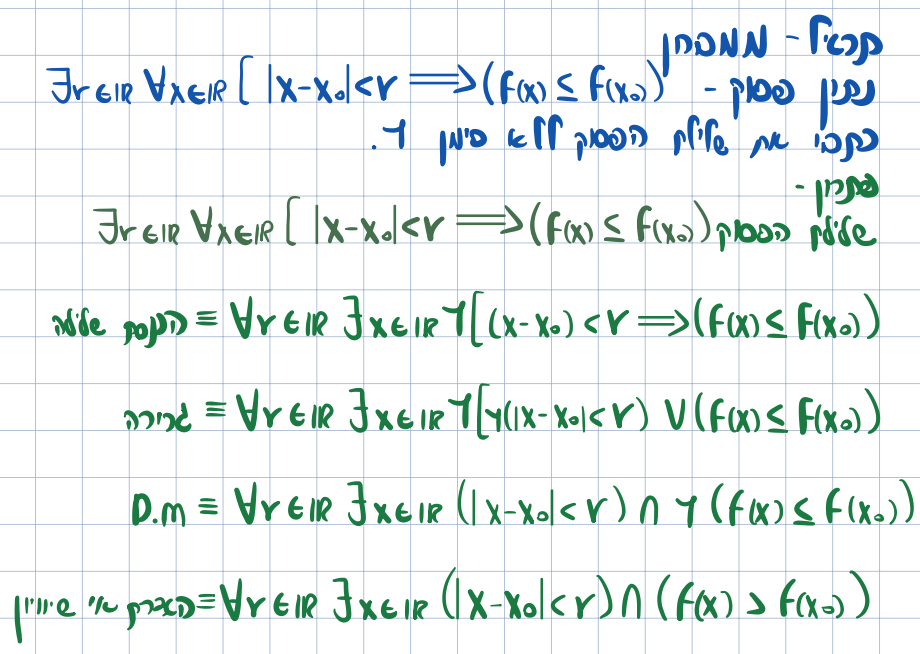 תרגיל - ממבחן
נתון פסוק - ∃r∈ℝ ∀x∈ℝ [ |x-x₀|<r ⟹ (f(x) ≤ f(x₀)
כתבי את שלילת הפסוק ללא סימן ¬.
פתרון -
שלילת הפסוק ∃r∈ℝ ∀x∈ℝ [ |x-x₀|<r ⟹ (f(x) ≤ f(x₀)
הכנסת שלילה ≡ ∀r∈ℝ ∃x∈ℝ ¬[(x-x₀)<r ⟹ (f(x) ≤ f(x₀))
גרירה ≡ ∀r∈ℝ ∃x∈ℝ ¬[¬(|x-x₀|<r) ∨ (f(x) ≤ f(x₀))
D.m ≡ ∀r∈ℝ ∃x∈ℝ (|x-x₀|<r) ∩ ¬(f(x) ≤ f(x₀))
≡ ∀r∈ℝ ∃x∈ℝ (|x-x₀|<r) ∩ (f(x) > f(x₀))